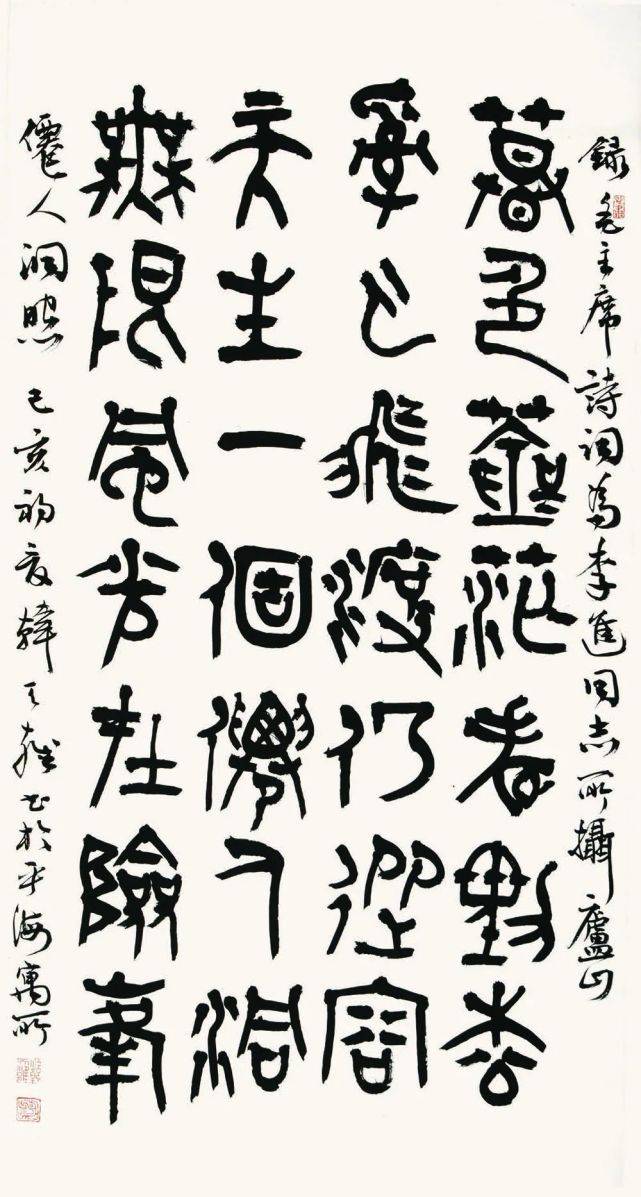 錄毛主席詩詞為李進同志所攝廬山
暮色蒼茫看勁松
亂雲飛渡仍從容
天生一個僊人洞
無限風光在險峯
僊人洞照 己亥初夏韓天雍书於平海寓所